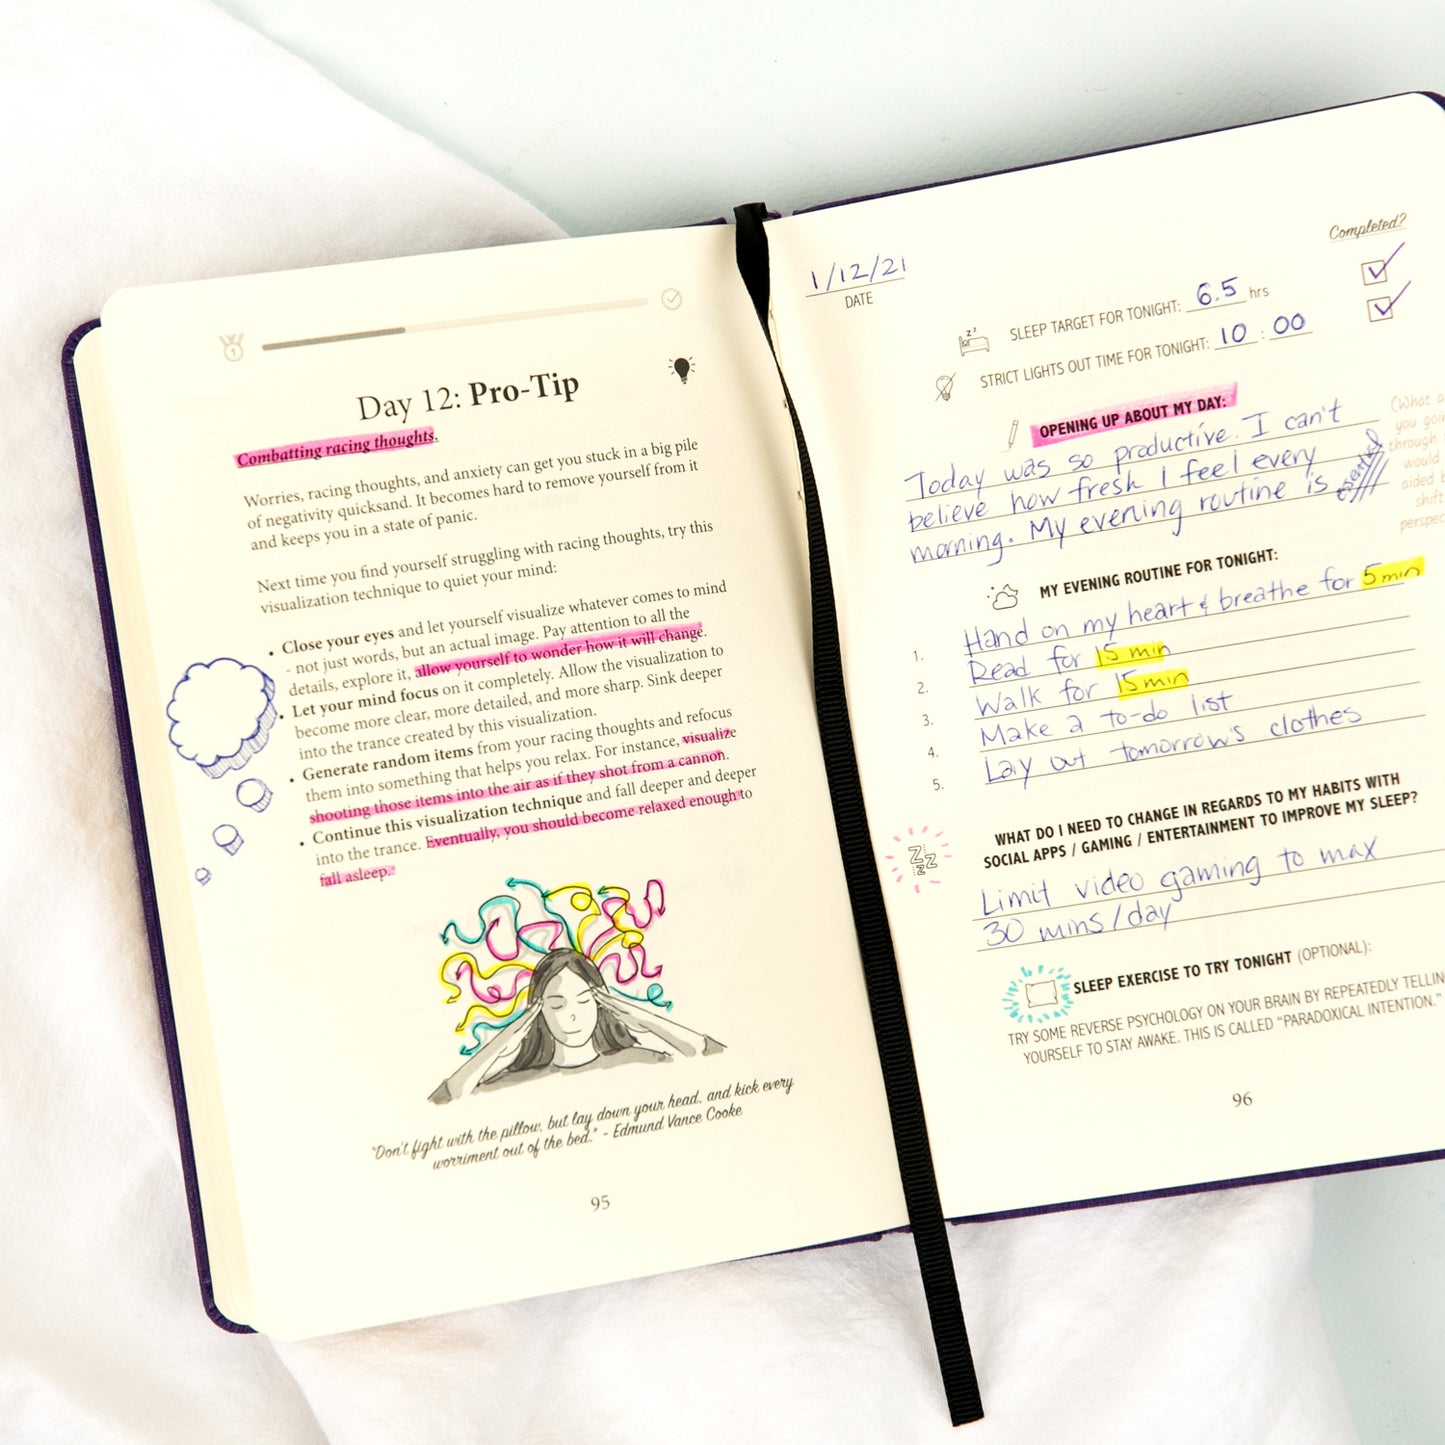 1
Day 12: Pro-Tip
Combatting racing thoughts.
Worries, racing thoughts, and anxiety can get you stuck in a big pile
of negativity quicksand. It becomes hard to remove yourself from it
and keeps you in a state of panic.
Next time you find yourself struggling with racing thoughts, try this
visualization technique to quiet your mind:
• Close your eyes and let yourself visualize whatever comes to mind
- not just words, but an actual image. Pay attention to all the
details, explore it, allow yourself to wonder how it will change.
• Let your mind focus on it completely. Allow the visualization to
become more clear, more detailed, and more sharp. Sink deeper
into the trance created by this visualization.
• Generate random items from your racing thoughts and refocus
them into something that helps you relax. For instance, visualize
shooting those items into the air as if they shot from a cannon.
• Continue this visualization technique and fall deeper and deeper
into the trance. Eventually, you should become relaxed enough to
fall asleep.
"Don't fight with the pillow, but lay down your head, and kick every
worriment out of the bed." - Edmund Vance Cooke
95
1/12/21
DATE
Completed?
SLEEP TARGET FOR TONIGHT: 6.5 hrs
STRICT LIGHTS OUT TIME FOR TONIGHT: 10 : 00
OPENING UP ABOUT MY DAY:
Today was so productive. I can't
believe how fresh I feel every
morning. My evening routine is
(What a
you goi
through
would
aided b
shift
perspec
MY EVENING ROUTINE FOR TONIGHT:
1. Hand on my heart & breathe for 5 min
2. Read for 15 min
3. Walk for 15 min
4. Make a to-do list
5. Lay out tomorrow's clothes
WHAT DO I NEED TO CHANGE IN REGARDS TO MY HABITS WITH
SOCIAL APPS / GAMING / ENTERTAINMENT TO IMPROVE MY SLEEP?
ZZZ
Limit video gaming to max
30 mins/day
SLEEP EXERCISE TO TRY TONIGHT (OPTIONAL):
TRY SOME REVERSE PSYCHOLOGY ON YOUR BRAIN BY REPEATEDLY TELLIN
YOURSELF TO STAY AWAKE. THIS IS CALLED "PARADOXICAL INTENTION."
96